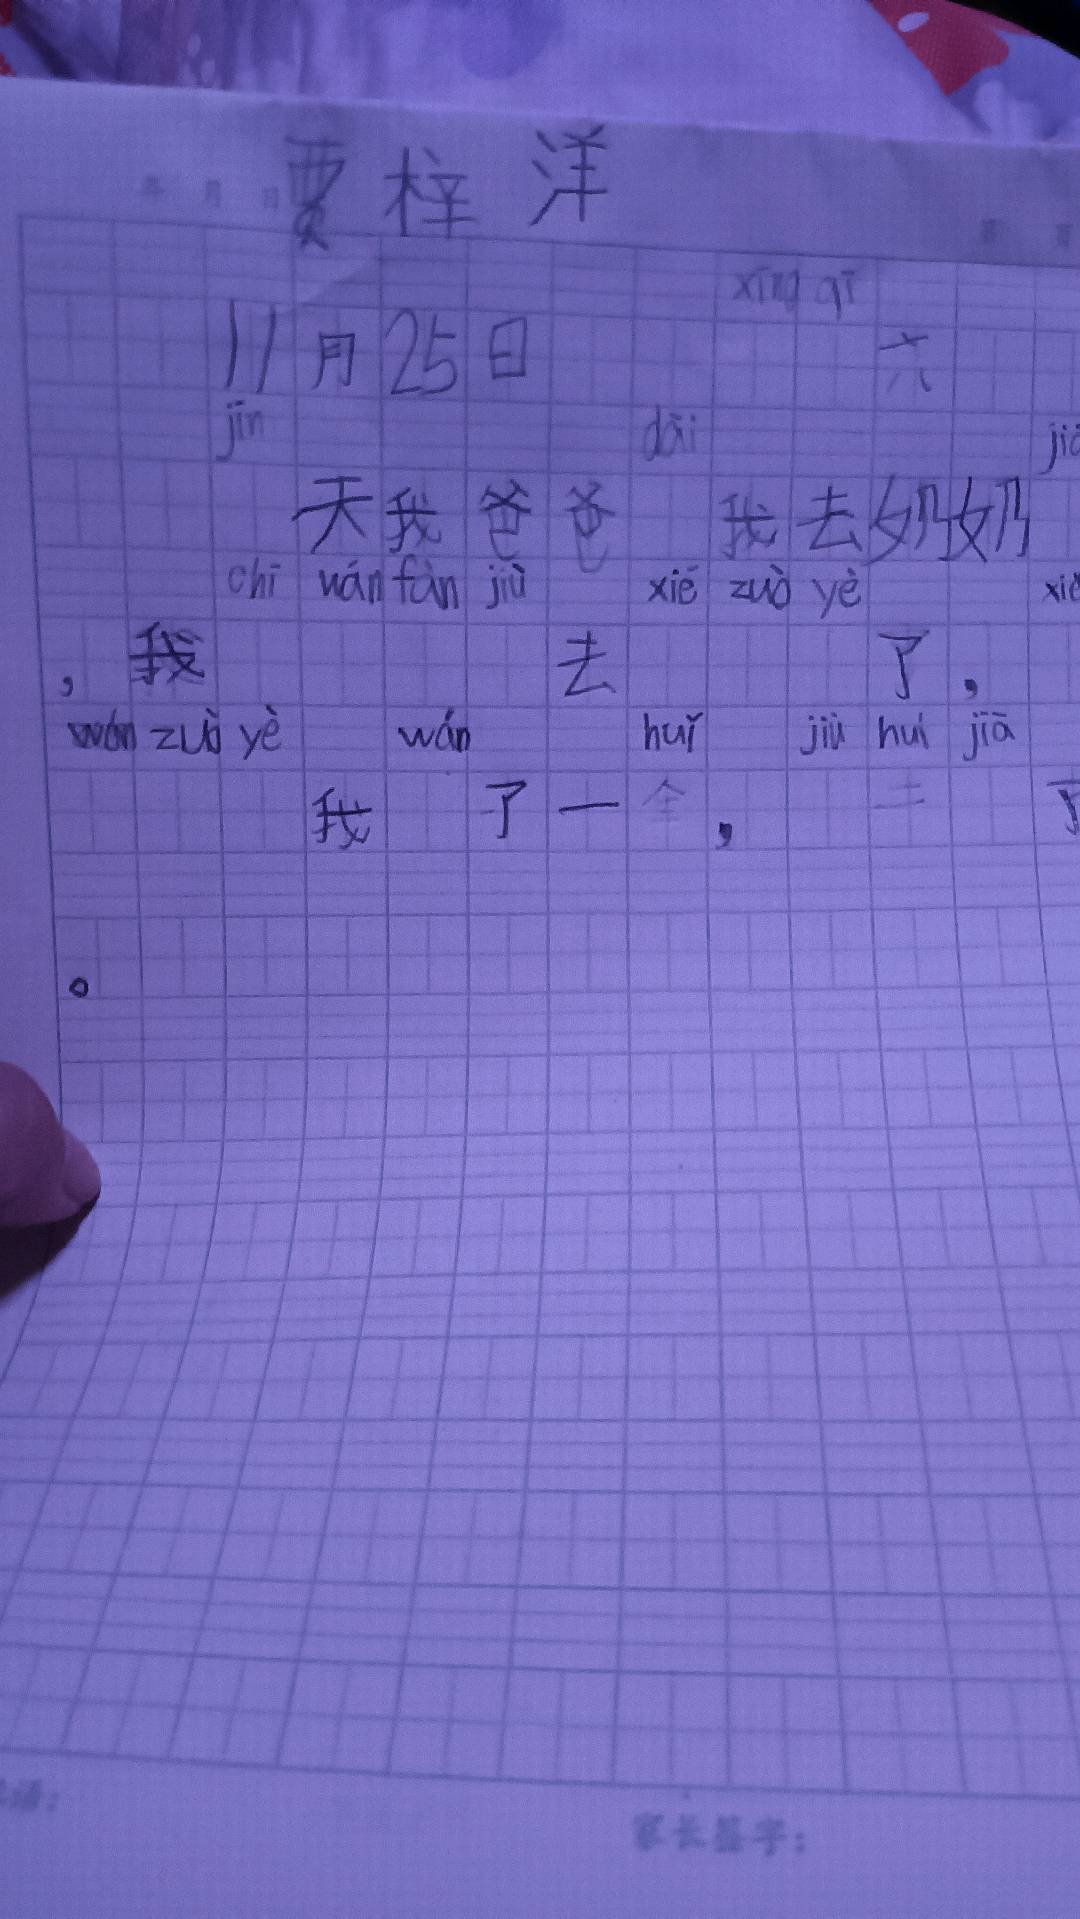 梓洋
xīng qī
11月25日 六
jīn dāi
天我爸爸 我去奶奶
chī wán fàn jiù xiě zuò yè
，我 去 了，
wán zuò yè wán huǐ jiù huí jiā
我 了一 ，
。
家长签字：